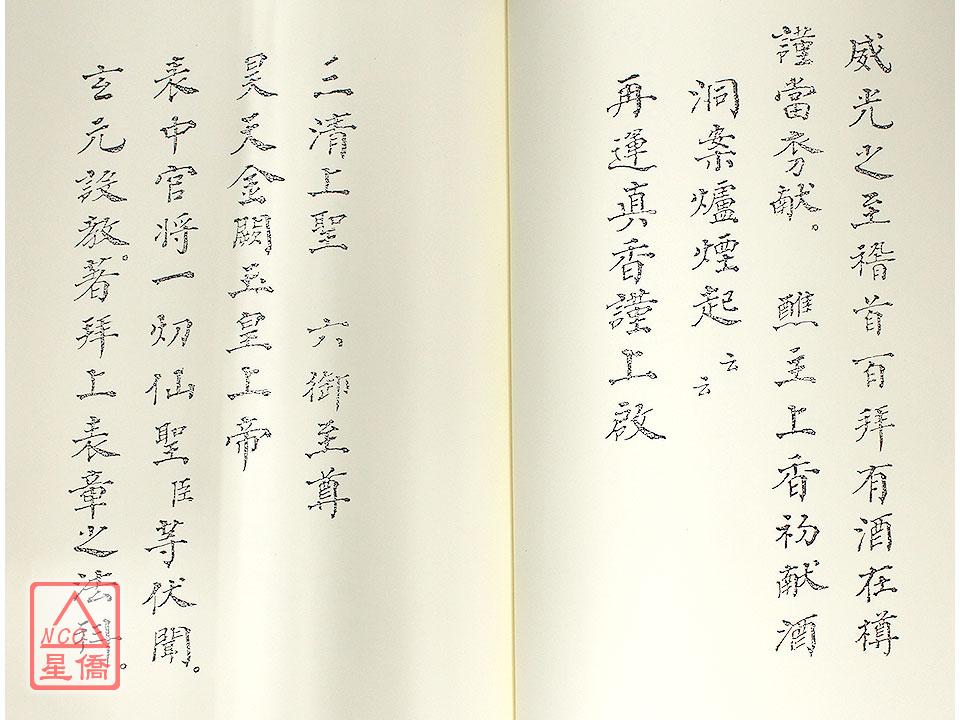 威光之至稽首百拜有酒在樽
謹當夯献。 醮主上香初献酒
洞案爐煙起 云云
再運真香謹上啟
三清上聖 六御至尊
昊天金闕玉皇上帝
表中官将一切仙聖臣等伏聞。
玄元設教。著拜上表章之法科。
NCC
星僑